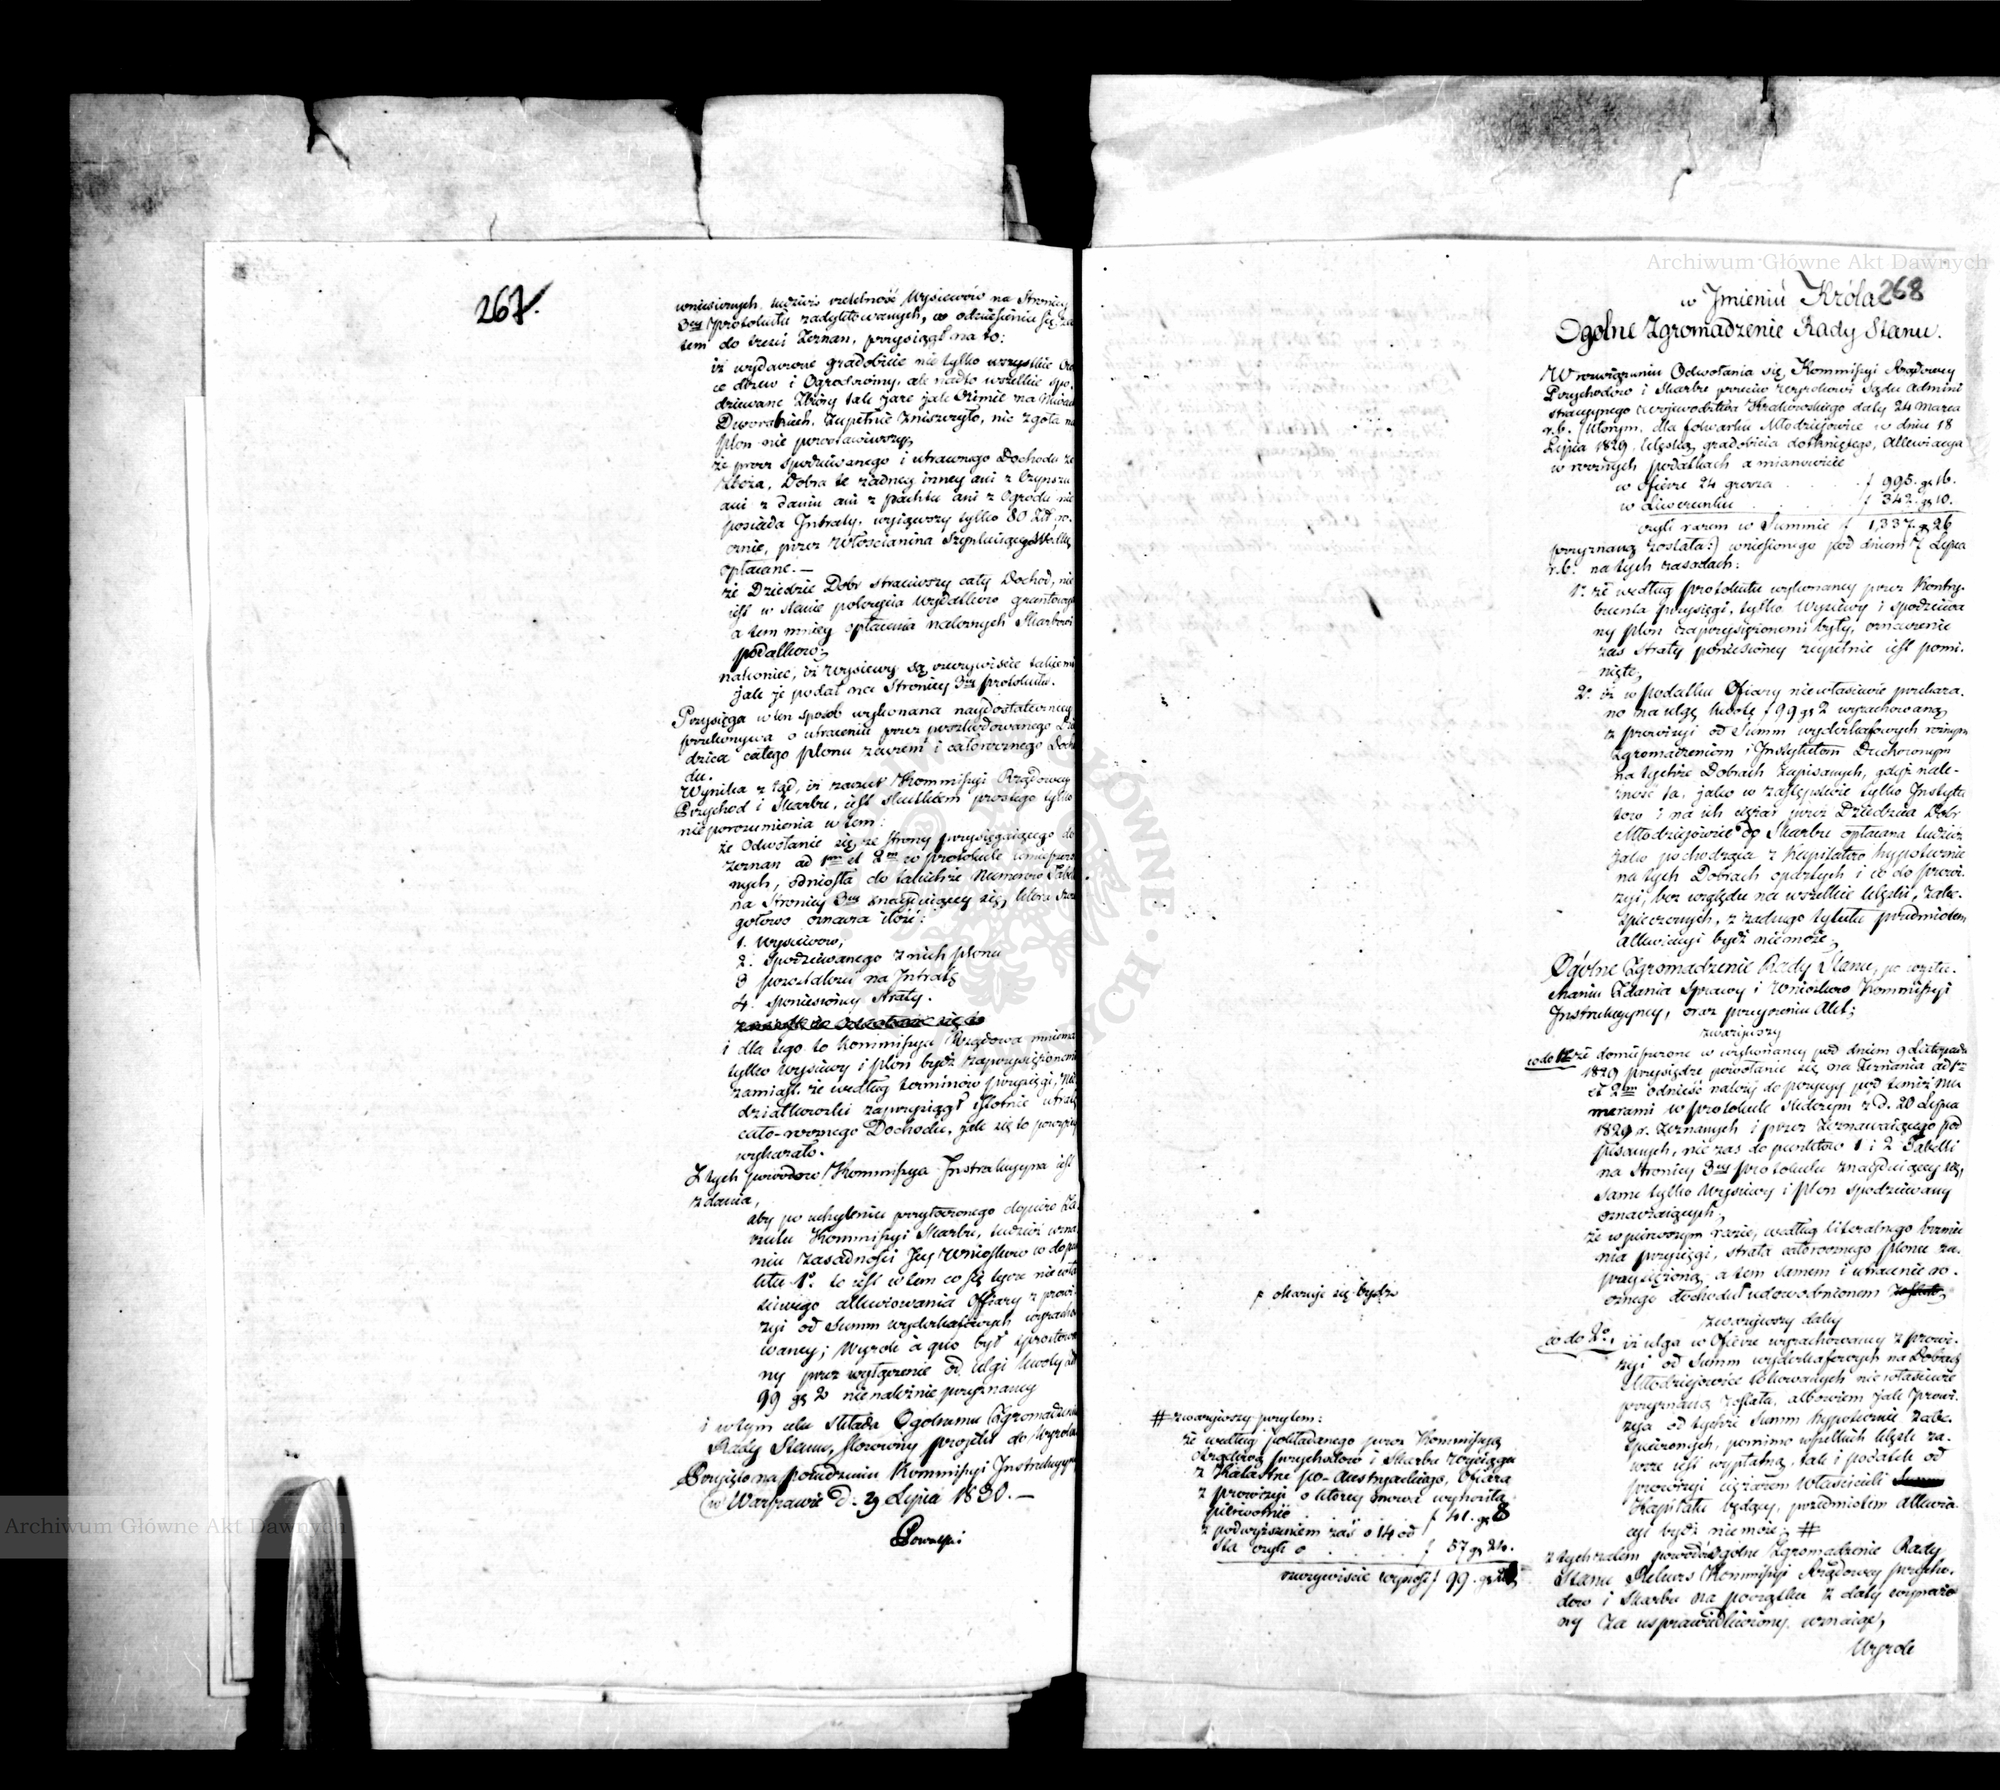 267.
wniesionych, tudzież rzetelność Wysiewów na Stronicy
3ciey protokułu zadyktowanych, w odniesieniu się za
tem do treści Zeznań, przysiągł na to:
iż wydarzone gradobicie nie tylko wszystkie Owo
ce drzew i Ogrodowiny, ale nadto wszelkie spo
dziewane Zbiory tak jare jak Ozimie na Niwach
Dworskich, Zupełnie Zniszczyło, nic zgoła na
plon nie pozostawiwszy;
że prócz spodziewanego i utraconego Dochodu ze
Zboża, Dobra te żadney inney ani z Czynszu
ani z daniu ani z pachtu ani z Ogrodu nie
posiada Intraty, wyiąwszy tylko 80 Złł. ro
cznie, przez Włościanina
opłacane.—
że Dziedzic Dóbr straciwszy cały Dochód, nie
jest w stanie pokrycia Wydatków gruntowych
a tem mniey opłacenia należnych Skarbowi
podatków;
nakoniec, iż Wysiewy są rzeczywiście takiemi
jak je podał na Stronicy 3ciey protokułu.
Przysięga w ten sposób wykonana naydostateczniey
przekonywa o utraceniu przez poszkodowanego Dzie
dzica całego plonu zarazem i całorocznego Docho
du.
Wynika z tąd, iż zarzut Kommissyi Rządowey
Przychod i Skarbu, iest skutkiem prostego tylko
nieporozumienia w tem:
że Odwołanie się ze strony przysięgaiącego do
zeznań ad 1m et 2m w protokule umieszczo
nych, odniosła do takichże Numerów Tabelli
na Stronicy 3ciey znayduiącey się, która szcze
gółowo oznacza ilość:
1. Wysiewów,
2. Spodziewanego z nich plonu
3 pozostałości na Intratę
4. poniesioney straty.
i dla tego to Kommissya Rządowa mniema
tylko wysiewy i plon bydź zaprzysiężonemi
zamiast że według terminów przysięgi,
zaprzysiągł istotnie utratę
cało-rocznego Dochodu, jak się to powyżey
wykazało.
Z tych powodów Kommissya Instrukcyina iest
zdania,
aby po uchyleniu przytoczonego dopiero Za
rzutu Kommissyi Skarbu, tudzież uzna
niu zasadności Jey Wniosków w do punk
tu 1o. to iest w tem co się tycze niewła
ściwego allewiowania Offiary z prowi
zyi od Summ wyderkafowych wyracho
waney; Wyrok à quo był sprostowa
ny przez wyłączenie od Ulgi kwoty złł
99 gr 2 nienależnie przyznaney
i w tym celu składa Ogólnemu Zgromadzeniu
Rady Stanu, stosowny projekt do Wyroku
Przyięto na Posiedzeniu Kommissyi Instrukcyiney
w Warszawie D. 29 Lipca 1830.—
268
w Jmieniu Króla
Ogólne Zgromadzenie Rady Stanu.
W rozwiązaniu Odwołania się Kommissyi Rządowey
Przychodów i Skarbu przeciw Wyrokowi Sądu Admini
stracyynego Województwa Krakowskiego daty 24 Marca
r.b. /:którym, dla folwarku Młodziejowice w dniu 18
Lipca 1829, klęską gradobicia dotkniętego, Allewiacya
w rocznych podatkach a mianowicie
w Ofierze 24 grosza . . . . . f 995. gr 16.
w Liwerunku . . . . . f 342. gr 10.
czyli razem w Summie f 1,337. gr 26
przyznaną została:/ wniesionego pod dniem 7 Lipca
r.b. na tych zasadach:
1o. że według protokułu wykonaney przez Kontry-
buenta przysięgi, tylko Wysiewy i spodziewa
ny plon zaprzysiężonemi były, oznaczenie
zaś straty poniesioney zupełnie iest pomi-
nięte,
2o. iż w podatku Ofiary niewłaściwie przekaza-
no na ulgę kwotę f 99 gr 2 wyrachowaną
z prowizyi od Summ wyderkafowych różnym
Zgromadzeniom i Instytutom Duchownym
na tychże Dobrach zapisanych, gdyż nale-
żność ta, jako w zastępstwie tylko Instytu
tów i na ich ciężar przez Dziedzica Dóbr
Młodziejowice do Skarbu opłacana tudzież
jako pochodząca z Kapitałów hypotecznie
na tych Dobrach opartych i co do prowi-
zyi, bez względu na wszelkie klęski, zabez-
pieczonych, z żadnego tytułu przedmiotem
allewiacyi bydź nie może;
Ogólne Zgromadzenie Rady Stanu, po wysłu-
chaniu Zdania Sprawy i Wniosków Kommissyi
Instrukcyiney, oraz przeyrzeniu Akt;
zważywszy
co do 1o. że domieszczone w wykonaney pod dniem 9 Listopada
1829 przysiędze powołanie się na zeznania ad 1m
et 2m odnieść należy do przyięty pod temiż Nu
merami w protokule śledczym z d. 20 Lipca
1829 r. Zeznanych i przez Zeznawaiącego pod
pisanych, nie zaś do punktów 1 i 2 Tabelli
na Stronicy 3ciey protokułu znayduiącey się,
same tylko Wysiewy i plon spodziewany
oznaczaiących;
że w pierwszym razie, według literalnego brzmie
nia przysięgi, strata całorocznego plonu za-
przysiężoną, a tem samem i utracenie ro-
cznego dochodu udowodnionem
# okazuje się bydź
zważywszy daley
co do 2o. iż ulga w Ofierze wyrachowaney z prowi-
zyi od Summ wyderkafowych na Dobrach
Młodziejowice lokowanych niewłaściwie
przyznaną została, albowiem jak prowi-
zya od tychże Summ hypotecznie zabez-
pieczonych, pomimo wszelkich klęsk za-
wsze iest wypłatną, tak i podatek od
prowizyi ciężarem Właścicieli
Kapitału będący, przedmiotem allewia
cyi bydź nie może; #
# zważywszy przytem:
że według pokładanego przez Kommissyą
Rządową Przychodów i Skarbu Wyciągu
z Katastru po-Austryackiego, Ofiara
z prowizyi o którey mowa wynosiła
pierwotnie . . . . . f 41. gr 8
z podwyższeniem zaś o 140 od
sta czyli o . . . . . f 57 gr 24.
rzeczywiście wynosi f 99. gr 2
z tych zatem powodów Ogólne Zgromadzenie Rady
Stanu Rekurs Kommissyi Rządowey przycho-
dów i Skarbu na początku z daty wyrażo
ny Za usprawiedliwiony uznaiąc,
Wyrok
Archiwum Główne Akt Dawnych
Archiwum Główne Akt Dawnych